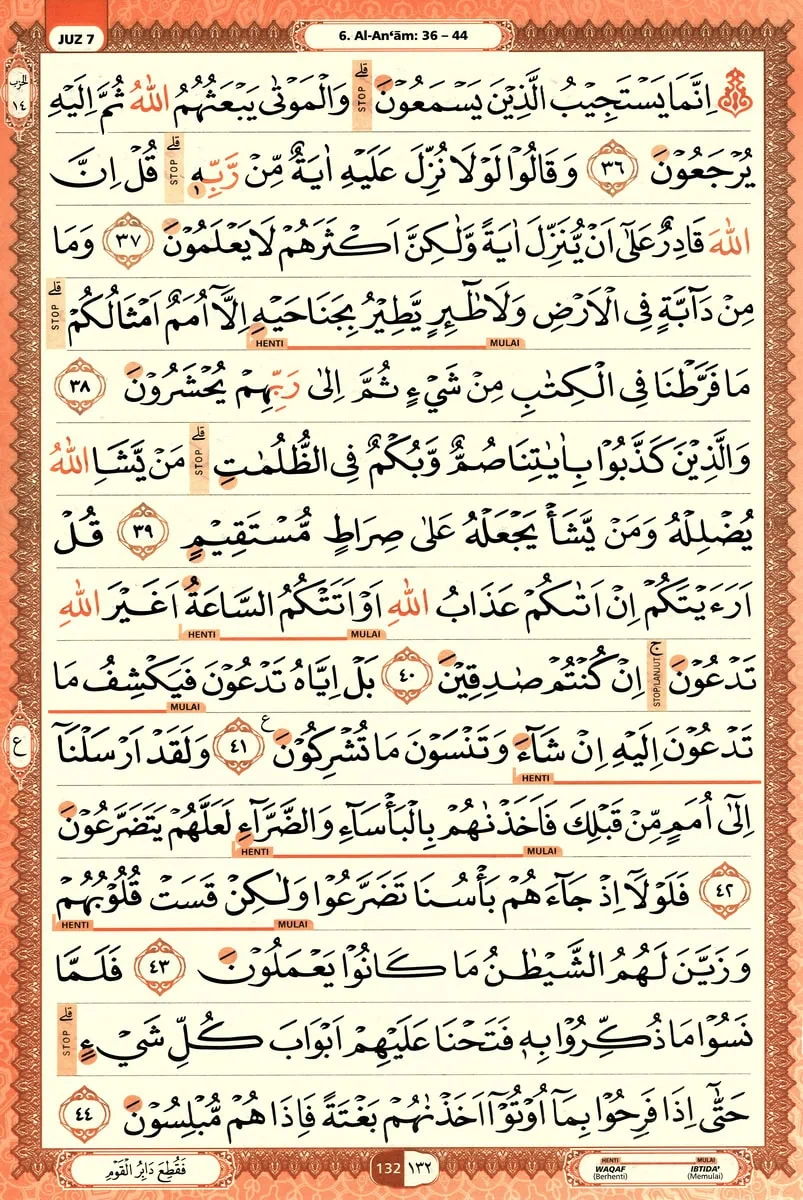 JUZ 7
6. Al-An‘ām: 36 – 44
الحزب
١٤
۞ اِنَّمَا يَسْتَجِيْبُ الَّذِيْنَ يَسْمَعُوْنَ ۗ STOP وَالْمَوْتٰى يَبْعَثُهُمُ اللّٰهُ ثُمَّ اِلَيْهِ
يُرْجَعُوْنَ ٣٦ وَقَالُوْا لَوْلَا نُزِّلَ عَلَيْهِ اٰيَةٌ مِّنْ رَّبِّهٖ ۗ STOP قُلْ اِنَّ
اللّٰهَ قَادِرٌ عَلٰٓى اَنْ يُّنَزِّلَ اٰيَةً وَّلٰكِنَّ اَكْثَرَهُمْ لَا يَعْلَمُوْنَ ٣٧ وَمَا
مِنْ دَاۤبَّةٍ فِى الْاَرْضِ وَلَا طٰۤىِٕرٍ يَّطِيْرُ بِجَنَاحَيْهِ اِلَّآ اُمَمٌ اَمْثَالُكُمْ ۗ STOP
HENTI MULAI
مَا فَرَّطْنَا فِى الْكِتٰبِ مِنْ شَيْءٍ ثُمَّ اِلٰى رَبِّهِمْ يُحْشَرُوْنَ ٣٨
وَالَّذِيْنَ كَذَّبُوْا بِاٰيٰتِنَا صُمٌّ وَّبُكْمٌ فِى الظُّلُمٰتِ ۗ STOP مَنْ يَّشَاِ اللّٰهُ
يُضْلِلْهُ وَمَنْ يَّشَأْ يَجْعَلْهُ عَلٰى صِرَاطٍ مُّسْتَقِيْمٍ ٣٩ قُلْ
اَرَءَيْتَكُمْ اِنْ اَتٰىكُمْ عَذَابُ اللّٰهِ اَوْ اَتَتْكُمُ السَّاعَةُ اَغَيْرَ اللّٰهِ
HENTI MULAI
تَدْعُوْنَ ۚ STOP/LANJUT اِنْ كُنْتُمْ صٰدِقِيْنَ ٤٠ بَلْ اِيَّاهُ تَدْعُوْنَ فَيَكْشِفُ مَا
MULAI
ع
تَدْعُوْنَ اِلَيْهِ اِنْ شَاۤءَ وَتَنْسَوْنَ مَا تُشْرِكُوْنَ ٤١ ع وَلَقَدْ اَرْسَلْنَآ
HENTI
اِلٰٓى اُمَمٍ مِّنْ قَبْلِكَ فَاَخَذْنٰهُمْ بِالْبَأْسَاۤءِ وَالضَّرَّاۤءِ لَعَلَّهُمْ يَتَضَرَّعُوْنَ
HENTI MULAI
٤٢ فَلَوْلَآ اِذْ جَاۤءَهُمْ بَأْسُنَا تَضَرَّعُوْا وَلٰكِنْ قَسَتْ قُلُوْبُهُمْ
HENTI MULAI
وَزَيَّنَ لَهُمُ الشَّيْطٰنُ مَا كَانُوْا يَعْمَلُوْنَ ٤٣ فَلَمَّا
نَسُوْا مَا ذُكِّرُوْا بِهٖ فَتَحْنَا عَلَيْهِمْ اَبْوَابَ كُلِّ شَيْءٍ ۗ STOP
حَتّٰٓى اِذَا فَرِحُوْا بِمَآ اُوْتُوْٓا اَخَذْنٰهُمْ بَغْتَةً فَاِذَا هُمْ مُّبْلِسُوْنَ ٤٤
فَقُطِعَ دَابِرُ الْقَوْمِ
132 ١٣٢
HENTI MULAI
WAQAF IBTIDA’
(Berhenti) (Memulai)